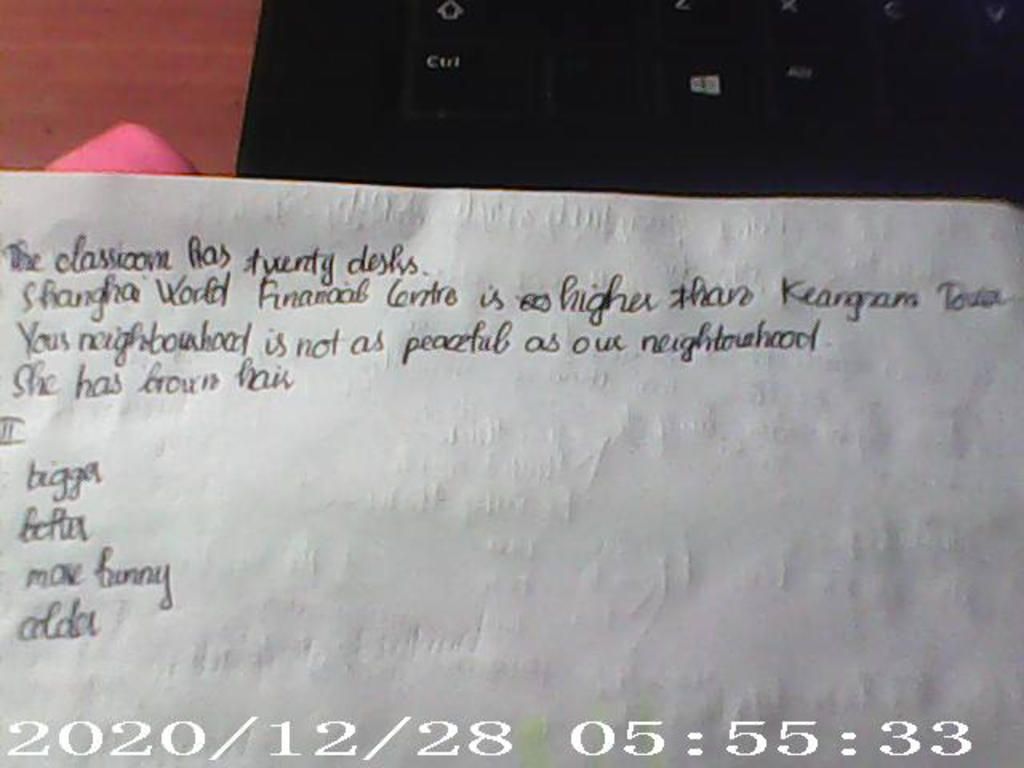 Ctrl
Alt
The classroom has twenty desks.
Shanghai World Financial Centre is higher than Keangnam Tower
Your neighbourhood is not as peaceful as our neighbourhood.
She has brown hair
II
bigger
better
more funny
colder
2020/12/28 05:55:33